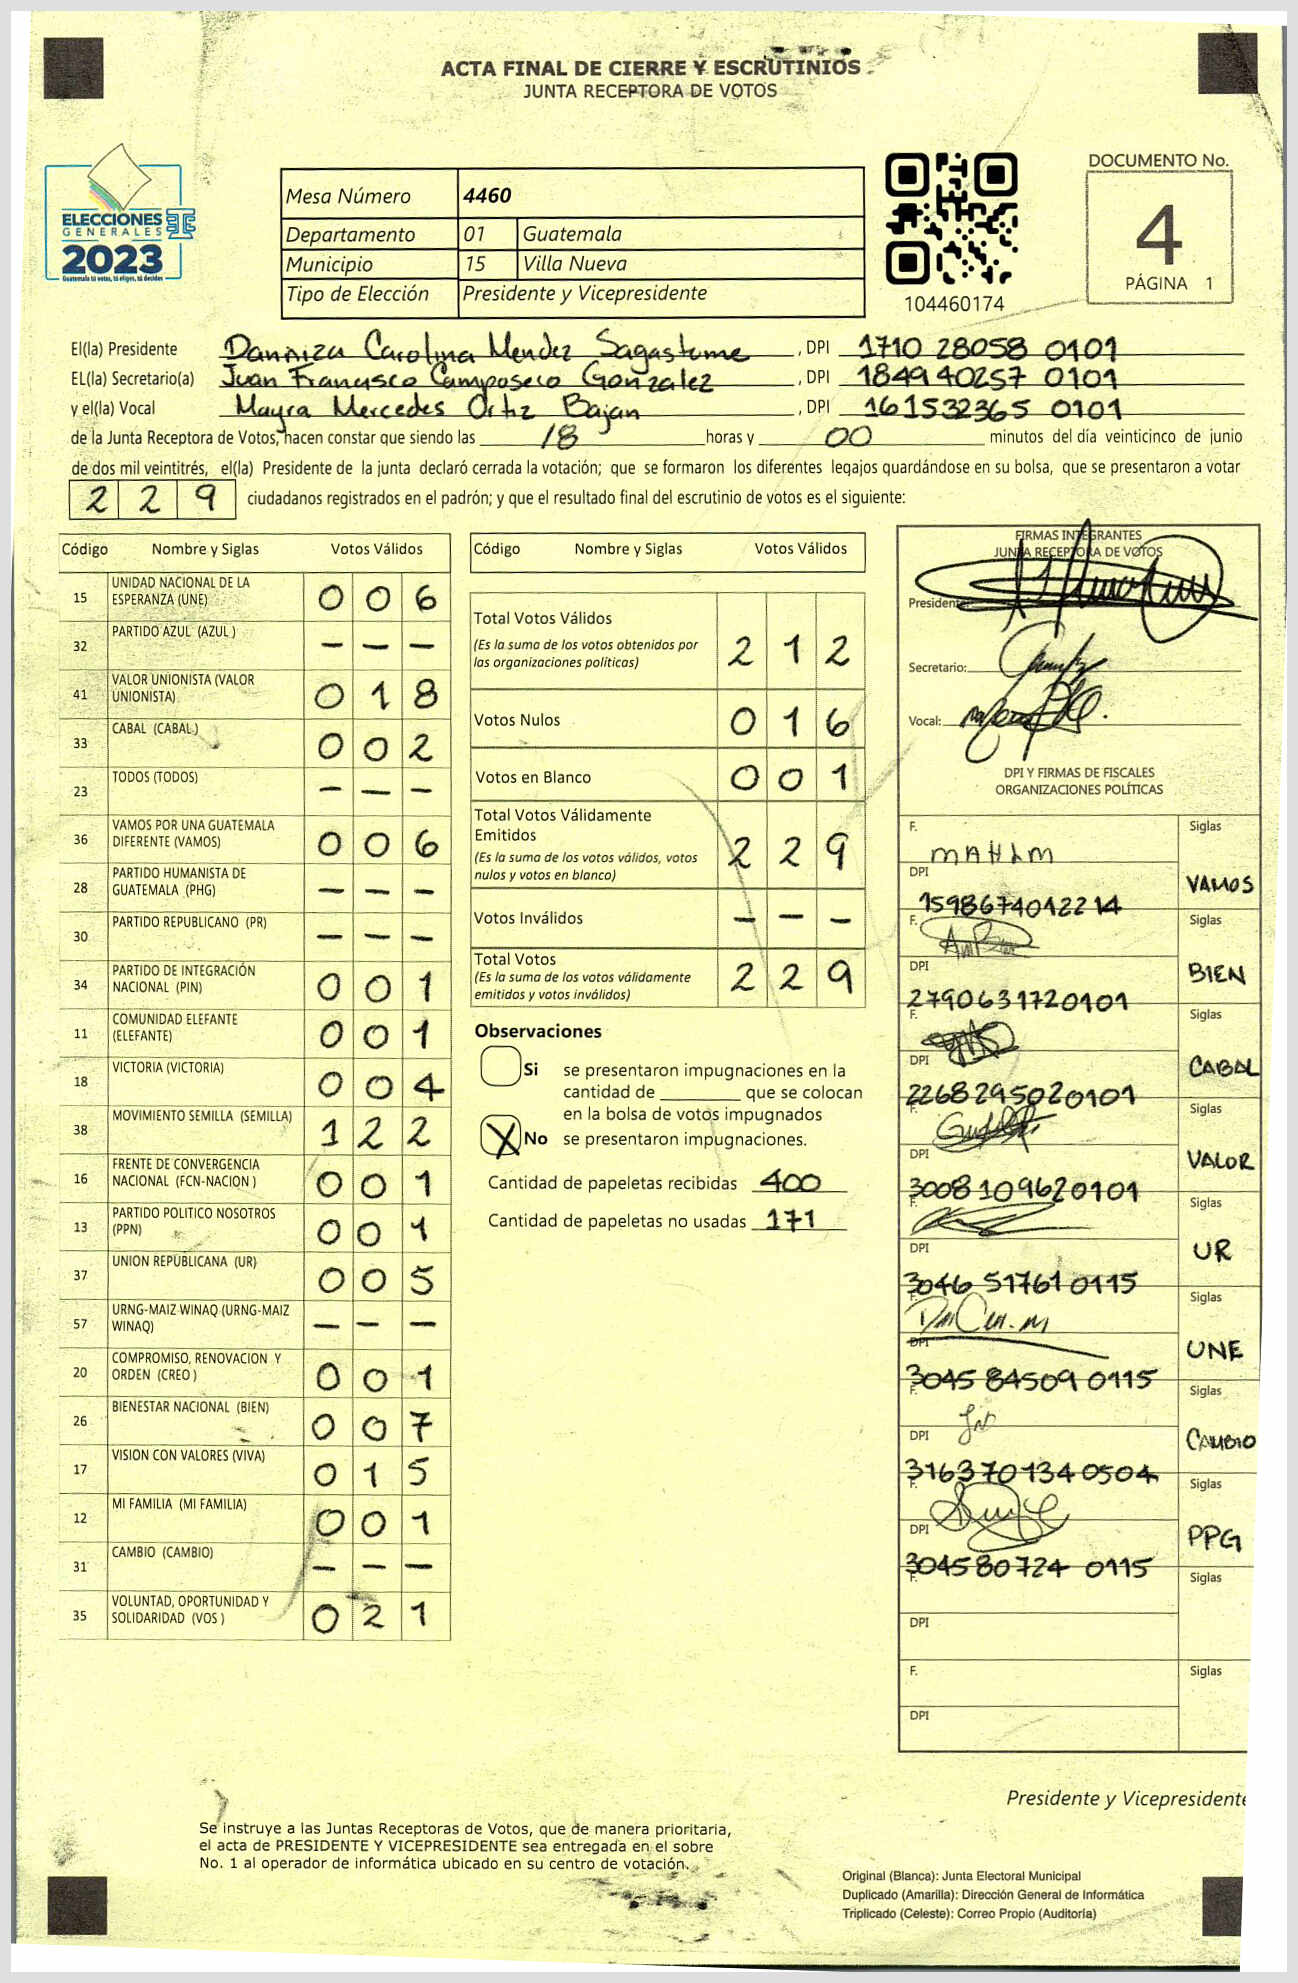 ACTA FINAL DE CIERRE Y ESCRUTINIOS
JUNTA RECEPTORA DE VOTOS
ELECCIONES
GENERALES
2023
Guatemala tú votas, tú eliges, tú decides
Mesa Número 4460
Departamento 01 Guatemala
Municipio 15 Villa Nueva
Tipo de Elección Presidente y Vicepresidente
104460174
DOCUMENTO No.
4
PÁGINA 1
El(la) Presidente Danniza Carolina Mendez Sagastume, DPI 1710 28058 0101
EL(la) Secretario(a) Juan Francisco Camposeco Gonzalez, DPI 1849 40257 0101
y el(la) Vocal Mayra Mercedes Ortiz Bajan, DPI 161532365 0101
de la Junta Receptora de Votos, hacen constar que siendo las 18 horas y 00 minutos del día veinticinco de junio
de dos mil veintitrés, el(la) Presidente de la junta declaró cerrada la votación; que se formaron los diferentes legajos guardándose en su bolsa, que se presentaron a votar
2 2 9 ciudadanos registrados en el padrón; y que el resultado final del escrutinio de votos es el siguiente:
Código Nombre y Siglas Votos Válidos
15 UNIDAD NACIONAL DE LA ESPERANZA (UNE) 0 0 6
32 PARTIDO AZUL (AZUL ) - - -
41 VALOR UNIONISTA (VALOR UNIONISTA) 0 1 8
33 CABAL (CABAL ) 0 0 2
23 TODOS (TODOS) - - -
36 VAMOS POR UNA GUATEMALA DIFERENTE (VAMOS) 0 0 6
28 PARTIDO HUMANISTA DE GUATEMALA (PHG) - - -
30 PARTIDO REPUBLICANO (PR) - - -
34 PARTIDO DE INTEGRACIÓN NACIONAL (PIN) 0 0 1
11 COMUNIDAD ELEFANTE (ELEFANTE) 0 0 1
18 VICTORIA (VICTORIA) 0 0 4
38 MOVIMIENTO SEMILLA (SEMILLA) 1 2 2
16 FRENTE DE CONVERGENCIA NACIONAL (FCN-NACION ) 0 0 1
13 PARTIDO POLITICO NOSOTROS (PPN) 0 0 1
37 UNION REPUBLICANA (UR) 0 0 5
57 URNG-MAIZ WINAQ (URNG-MAIZ WINAQ) - - -
20 COMPROMISO, RENOVACION Y ORDEN (CREO ) 0 0 1
26 BIENESTAR NACIONAL (BIEN) 0 0 7
17 VISION CON VALORES (VIVA) 0 1 5
12 MI FAMILIA (MI FAMILIA) 0 0 1
31 CAMBIO (CAMBIO) - - -
35 VOLUNTAD, OPORTUNIDAD Y SOLIDARIDAD (VOS ) 0 2 1
Código Nombre y Siglas Votos Válidos
Total Votos Válidos
(Es la suma de los votos obtenidos por las organizaciones políticas) 2 1 2
Votos Nulos 0 1 6
Votos en Blanco 0 0 1
Total Votos Válidamente Emitidos
(Es la suma de los votos válidos, votos nulos y votos en blanco) 2 2 9
Votos Inválidos - - -
Total Votos
(Es la suma de los votos válidamente emitidos y votos inválidos) 2 2 9
Observaciones
Si se presentaron impugnaciones en la
cantidad de ________ que se colocan
en la bolsa de votos impugnados
X No se presentaron impugnaciones.
Cantidad de papeletas recibidas 400
Cantidad de papeletas no usadas 171
FIRMAS INTEGRANTES
JUNTA RECEPTORA DE VOTOS
Presidente:
Secretario:
Vocal:
DPI Y FIRMAS DE FISCALES
ORGANIZACIONES POLÍTICAS
F. Siglas
DPI 1598674012214 VAMOS
F. Siglas
DPI 2790631720101 BIEN
F. Siglas
DPI 2268295020101 CABAL
F. Siglas
DPI 3008109620101 VALOR
F. Siglas
DPI 3046 51761 0115 UR
F. Siglas
DPI 3045 84509 0115 UNE
F. Siglas
DPI 3163701340504 CAMBIO
F. Siglas
DPI 304580724 0115 PPG
F. Siglas
DPI
F. Siglas
DPI
Presidente y Vicepresidente
Se instruye a las Juntas Receptoras de Votos, que de manera prioritaria,
el acta de PRESIDENTE Y VICEPRESIDENTE sea entregada en el sobre
No. 1 al operador de informática ubicado en su centro de votación.
Original (Blanca): Junta Electoral Municipal
Duplicado (Amarilla): Dirección General de Informática
Triplicado (Celeste): Correo Propio (Auditoría)